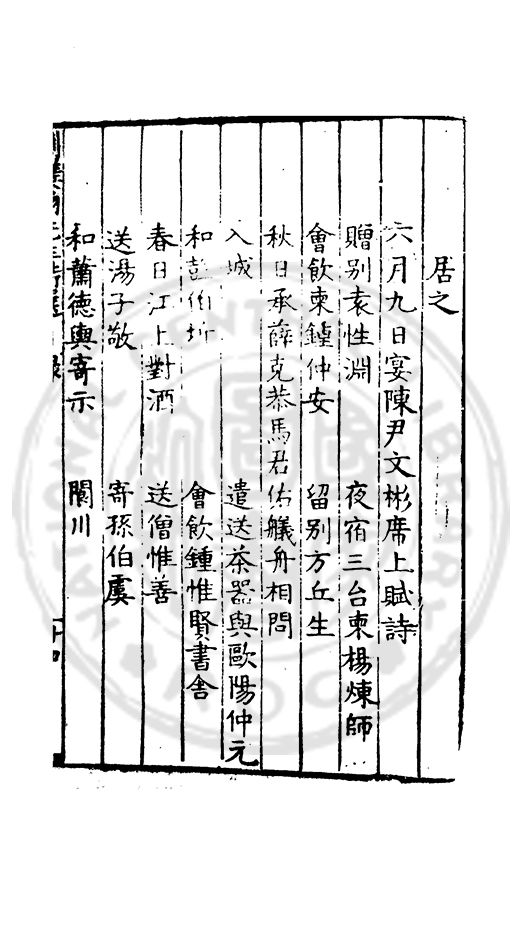 居之
六月九日宴陳尹文彬席上賦詩
贈別袁性淵 夜宿三台柬楊煉師
會飲柬鍾仲安 留別方丘生
秋日承薛克恭馬君佑艤舟相問
入城 遣送茶器與歐陽仲元
和彭伯圻 會飲鍾惟賢書舍
春日江上對酒 送僧惟善
送湯子敬 寄孫伯虞
和蕭德輿寄示 閬川